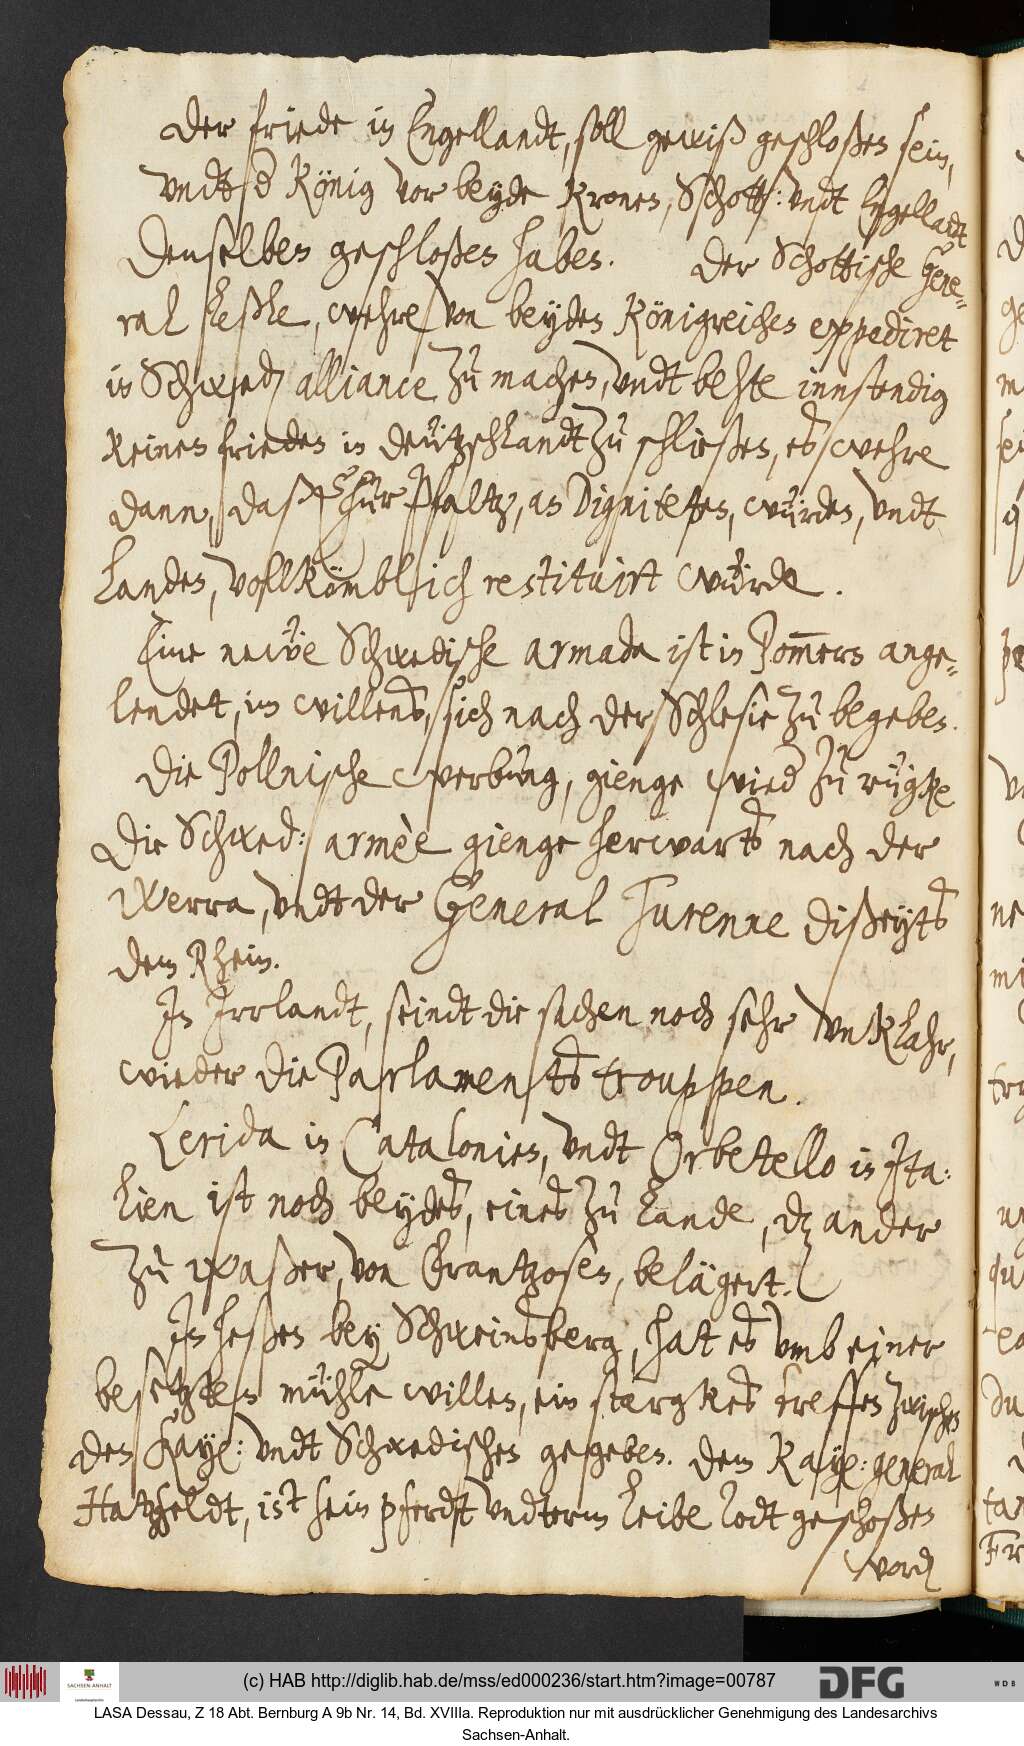 Der friede in Engellandt, soll gewiß geschloßen sein,
vndt d König vor beyde Kronen, Schott: vndt Engellandt
denselben geschloßen haben. Der Schottische Gene-
ral Leßle, wehre von beyden Königreichen expediret
in Schwed alliance zu machen, vndt behte innstendig
keinen frieden in Deützschlandt zu schließen, es wehre
dann, daß Chur Pfaltz, an Digniteten, würden, vndt
Landen, vollkömblich restituirt würde.
Eine neẅe Schwedische armada ist in Pom̅ern ange-
lendet, im willens, sich nach der Schlesie zu begeben.
Die Pollnische werbung, gienge wied zu rügke
Die Schwed: armèe gienge herwarts nach der
Werra, vndt der General Turenne dißeyts
dem Rhein.
In Irrlandt, seindt die sachen noch sehr vnklahr,
wieder die Parlaments trouppen.
Lerida in Catalonien, vndt Orbetello in Ita:
lien ist noch beydes, eines zu Lande, dz ander
zu Waßer, von Frantzosen, belägert.
In Heßen bey Schweinsberg, hat es vmb einer
besetzten mühle willen, ein stargkes treffen zwischen
den Kayß: vndt Schwedischen gegeben. Dem Kayß: general
Hatzfeldt, ist sein pferdt vndterm leibe todt geschoßen
word
(c) HAB http://diglib.hab.de/mss/ed000236/start.htm?image=00787
SACHSEN-ANHALT
DFG
WDB
LASA Dessau, Z 18 Abt. Bernburg A 9b Nr. 14, Bd. XVIIIa. Reproduktion nur mit ausdrücklicher Genehmigung des Landesarchivs
Sachsen-Anhalt.